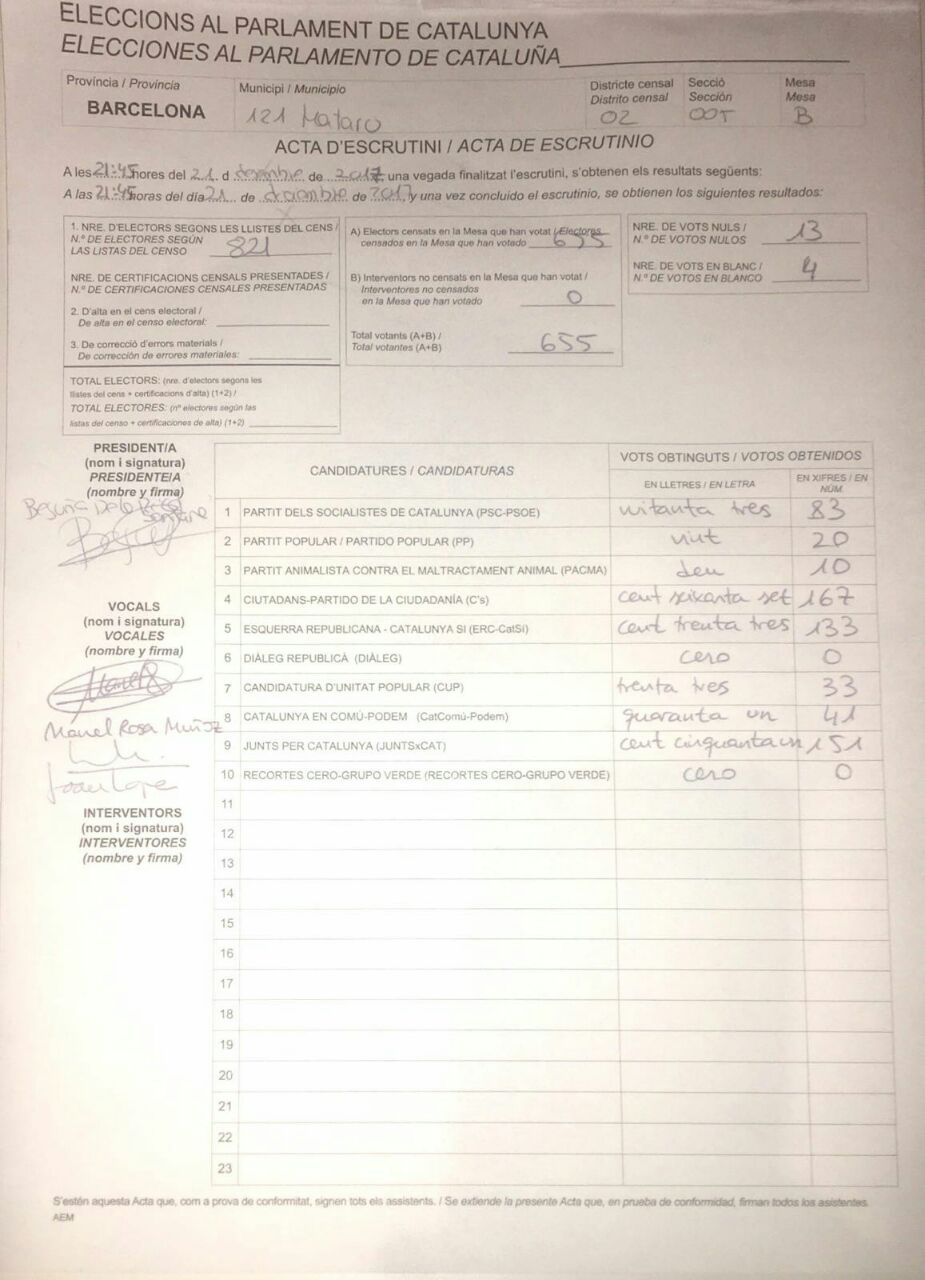 ELECCIONS AL PARLAMENT DE CATALUNYA
ELECCIONES AL PARLAMENTO DE CATALUÑA
Província / Provincia
BARCELONA
Municipi / Municipio
121 Mataro
Districte censal
Distrito censal
02
Secció
Sección
005
Mesa
Mesa
B
ACTA D'ESCRUTINI / ACTA DE ESCRUTINIO
A les 21:45 hores del 21 d desembre de 2017 una vegada finalitzat l'escrutini, s'obtenen els resultats següents:
A las 21:45 horas del día 21 de diciembre de 2017, y una vez concluido el escrutinio, se obtienen los siguientes resultados:
1. NRE. D'ELECTORS SEGONS LES LLISTES DEL CENS /
N.º DE ELECTORES SEGÚN
LAS LISTAS DEL CENSO 821
NRE. DE CERTIFICACIONS CENSALS PRESENTADES /
N.º DE CERTIFICACIONES CENSALES PRESENTADAS
2. D'alta en el cens electoral /
De alta en el censo electoral:
3. De correcció d'errors materials /
De corrección de errores materiales:
TOTAL ELECTORS: (nre. d'electors segons les
llistes del cens + certificacions d'alta) (1+2) /
TOTAL ELECTORES: (nº electores según las
listas del censo + certificaciones de alta) (1+2)
A) Electors censats en la Mesa que han votat / Electores
censados en la Mesa que han votado 655
B) Interventors no censats en la Mesa que han votat /
Interventores no censados
en la Mesa que han votado 0
Total votants (A+B) /
Total votantes (A+B) 655
NRE. DE VOTS NULS /
N.º DE VOTOS NULOS 13
NRE. DE VOTS EN BLANC /
N.º DE VOTOS EN BLANCO 4
PRESIDENT/A
(nom i signatura)
PRESIDENTE/A
(nombre y firma)
VOCALS
(nom i signatura)
VOCALES
(nombre y firma)
Manel Rosa Muñoz
INTERVENTORS
(nom i signatura)
INTERVENTORES
(nombre y firma)
CANDIDATURES / CANDIDATURAS
VOTS OBTINGUTS / VOTOS OBTENIDOS
EN LLETRES / EN LETRA
EN XIFRES / EN NÚM.
1 PARTIT DELS SOCIALISTES DE CATALUNYA (PSC-PSOE) uitanta tres 83
2 PARTIT POPULAR / PARTIDO POPULAR (PP) vint 20
3 PARTIT ANIMALISTA CONTRA EL MALTRACTAMENT ANIMAL (PACMA) deu 10
4 CIUTADANS-PARTIDO DE LA CIUDADANÍA (C's) cent seixanta set 167
5 ESQUERRA REPUBLICANA - CATALUNYA SI (ERC-CatSí) cent trenta tres 133
6 DIÀLEG REPUBLICÀ (DIÀLEG) cero 0
7 CANDIDATURA D'UNITAT POPULAR (CUP) trenta tres 33
8 CATALUNYA EN COMÚ-PODEM (CatComú-Podem) quaranta un 41
9 JUNTS PER CATALUNYA (JUNTSxCAT) cent cinquanta un 151
10 RECORTES CERO-GRUPO VERDE (RECORTES CERO-GRUPO VERDE) cero 0
11
12
13
14
15
16
17
18
19
20
21
22
23
S'estén aquesta Acta que, com a prova de conformitat, signen tots els assistents. / Se extiende la presente Acta que, en prueba de conformidad, firman todos los asistentes.
AEM